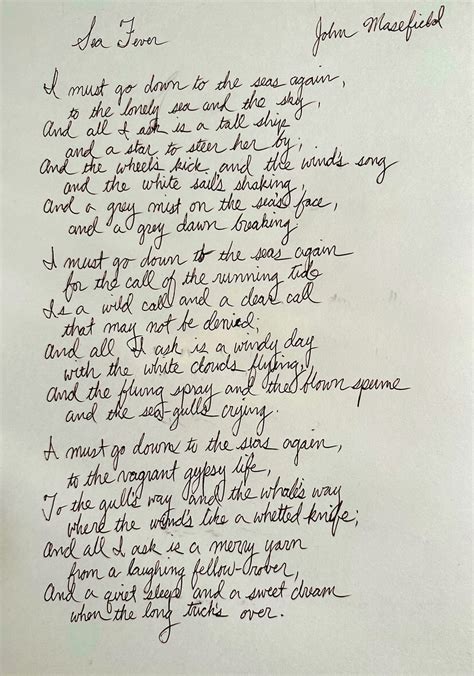 Sea Fever
John Masefield
I must go down to the seas again,
to the lonely sea and the sky,
And all I ask is a tall ship
and a star to steer her by;
And the wheel's kick and the wind's song
and the white sail's shaking,
And a grey mist on the sea's face,
and a grey dawn breaking
I must go down to the seas again
for the call of the running tide
Is a wild call and a clear call
that may not be denied;
And all I ask is a windy day
with the white clouds flying,
And the flung spray and the blown spume
and the sea-gulls crying.
I must go down to the seas again,
to the vagrant gypsy life,
To the gull's way and the whale's way
where the wind's like a whetted knife;
And all I ask is a merry yarn
from a laughing fellow-rover,
And a quiet sleep and a sweet dream
when the long trick's over.